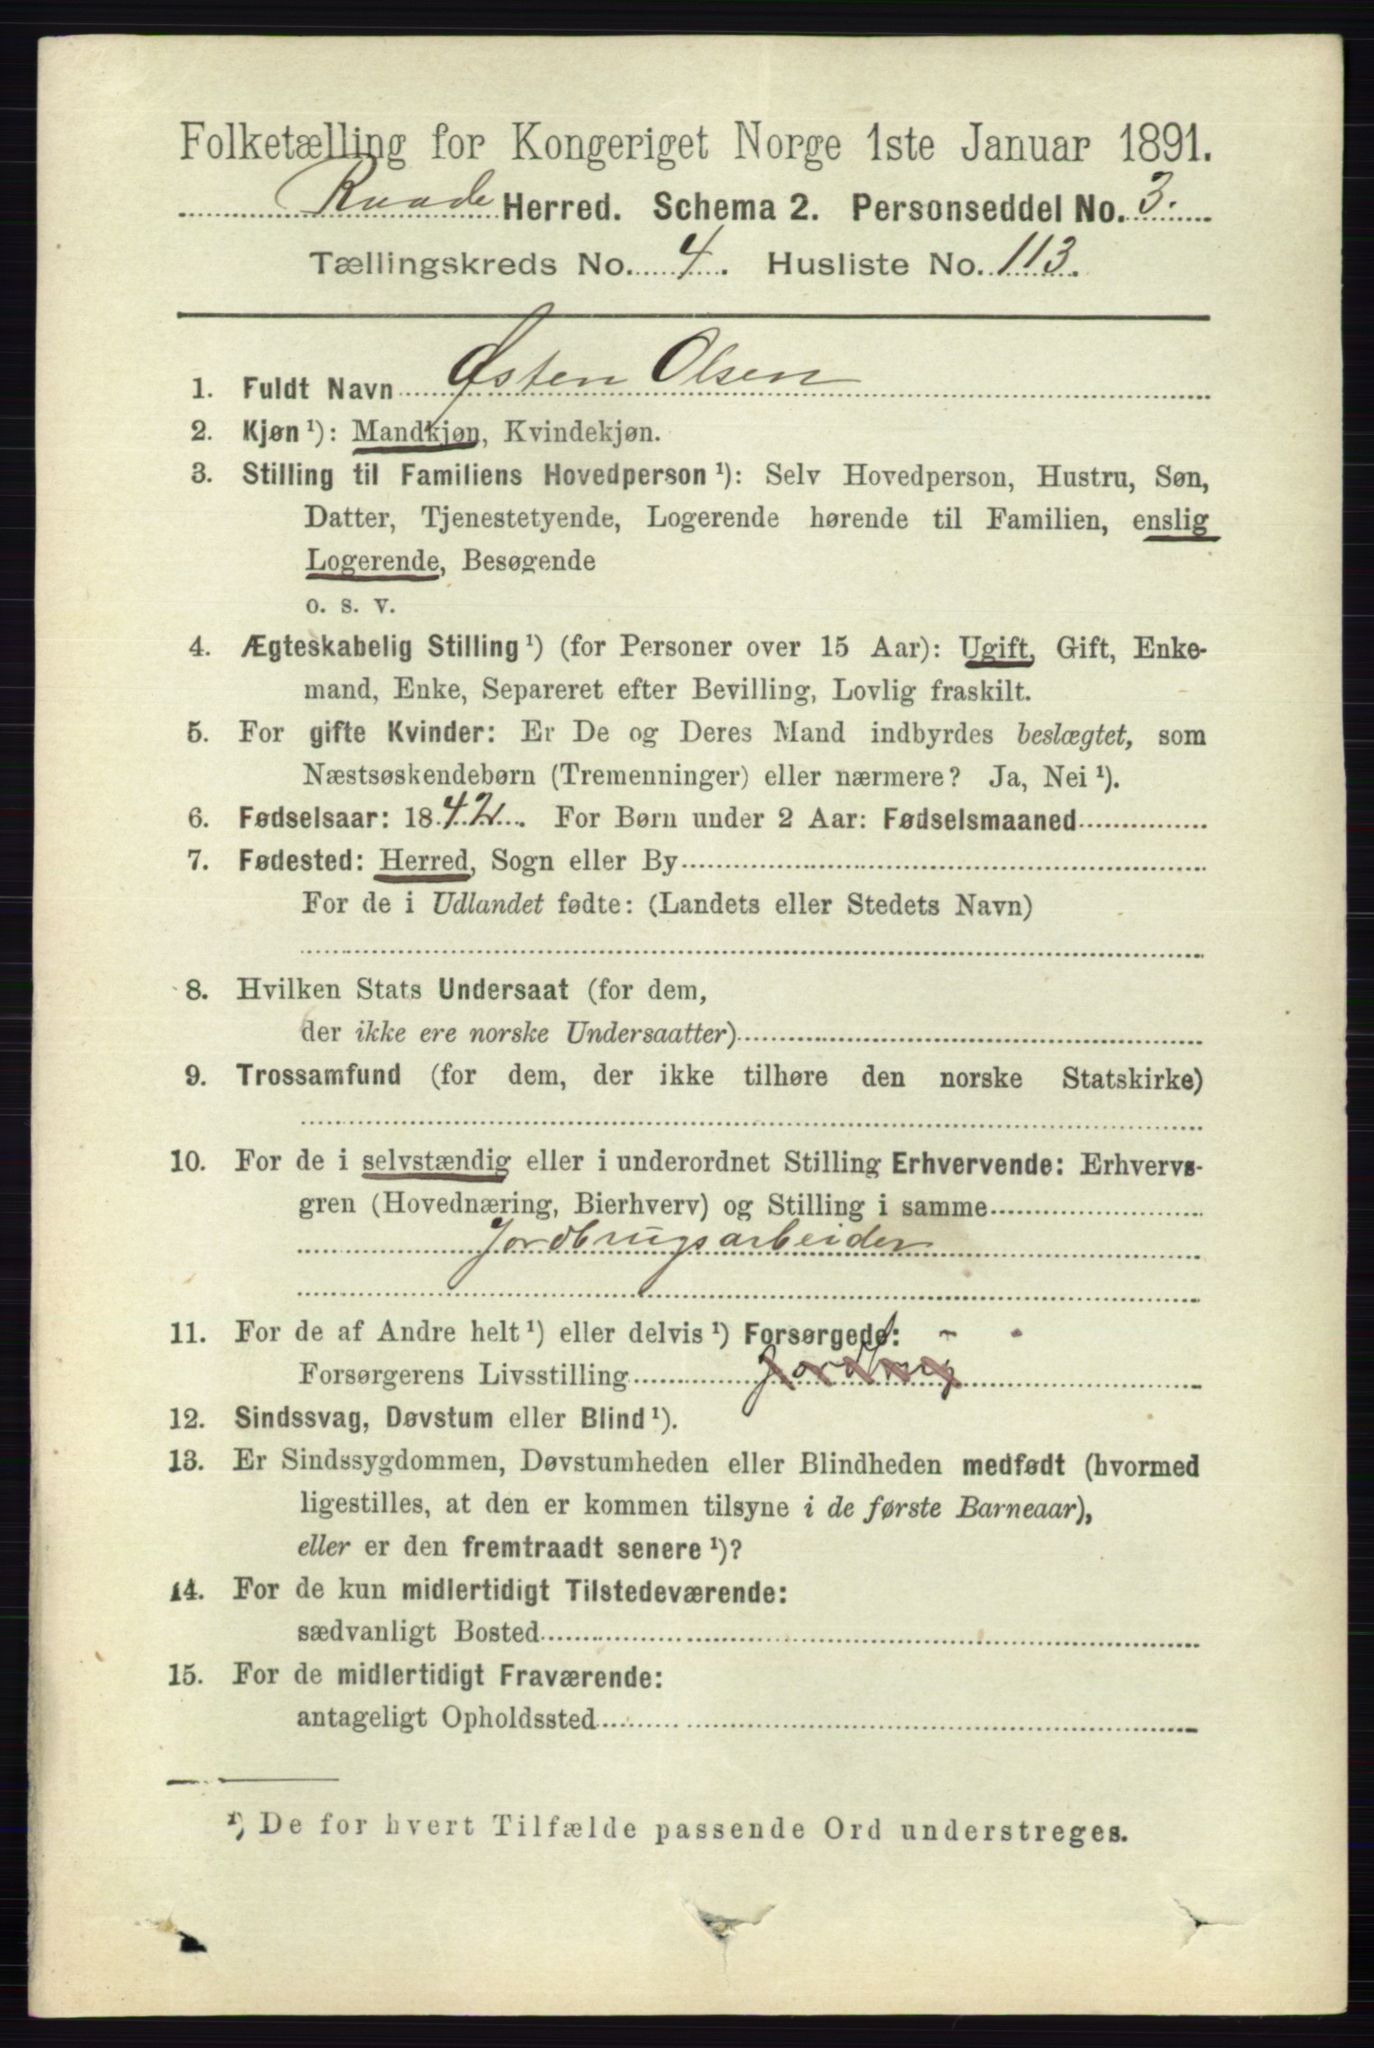 Folketælling for Kongeriget Norge 1ste Januar 1891.
Raade Herred. Schema 2. Personseddel No. 3.
Tællingskreds No. 4. Husliste No. 113.
1. Fuldt Navn Østen Olsen
2. Kjøn ¹): Mandkjøn, Kvindekjøn.
3. Stilling til Familiens Hovedperson ¹): Selv Hovedperson, Hustru, Søn,
Datter, Tjenestetyende, Logerende hørende til Familien, enslig
Logerende, Besøgende
o. s. v.
4. Ægteskabelig Stilling ¹) (for Personer over 15 Aar): Ugift, Gift, Enke-
mand, Enke, Separeret efter Bevilling, Lovlig fraskilt.
5. For gifte Kvinder: Er De og Deres Mand indbyrdes beslægtet, som
Næstsøskendebørn (Tremenninger) eller nærmere? Ja, Nei ¹).
6. Fødselsaar: 1842. For Børn under 2 Aar: Fødselsmaaned
7. Fødested: Herred, Sogn eller By
For de i Udlandet fødte: (Landets eller Stedets Navn)
8. Hvilken Stats Undersaat (for dem,
der ikke ere norske Undersaatter)
9. Trossamfund (for dem, der ikke tilhøre den norske Statskirke)
10. For de i selvstændig eller i underordnet Stilling Erhvervende: Erhvervs-
gren (Hovednæring, Bierhverv) og Stilling i samme
Jordbrugsarbeider
11. For de af Andre helt ¹) eller delvis ¹) Forsørgede: - -
Forsørgerens Livsstilling
12. Sindssvag, Døvstum eller Blind ¹).
13. Er Sindssygdommen, Døvstumheden eller Blindheden medfødt (hvormed
ligestilles, at den er kommen tilsyne i de første Barneaar),
eller er den fremtraadt senere ¹)?
14. For de kun midlertidigt Tilstedeværende:
sædvanligt Bosted
15. For de midlertidigt Fraværende:
antageligt Opholdssted
¹) De for hvert Tilfælde passende Ord understreges.